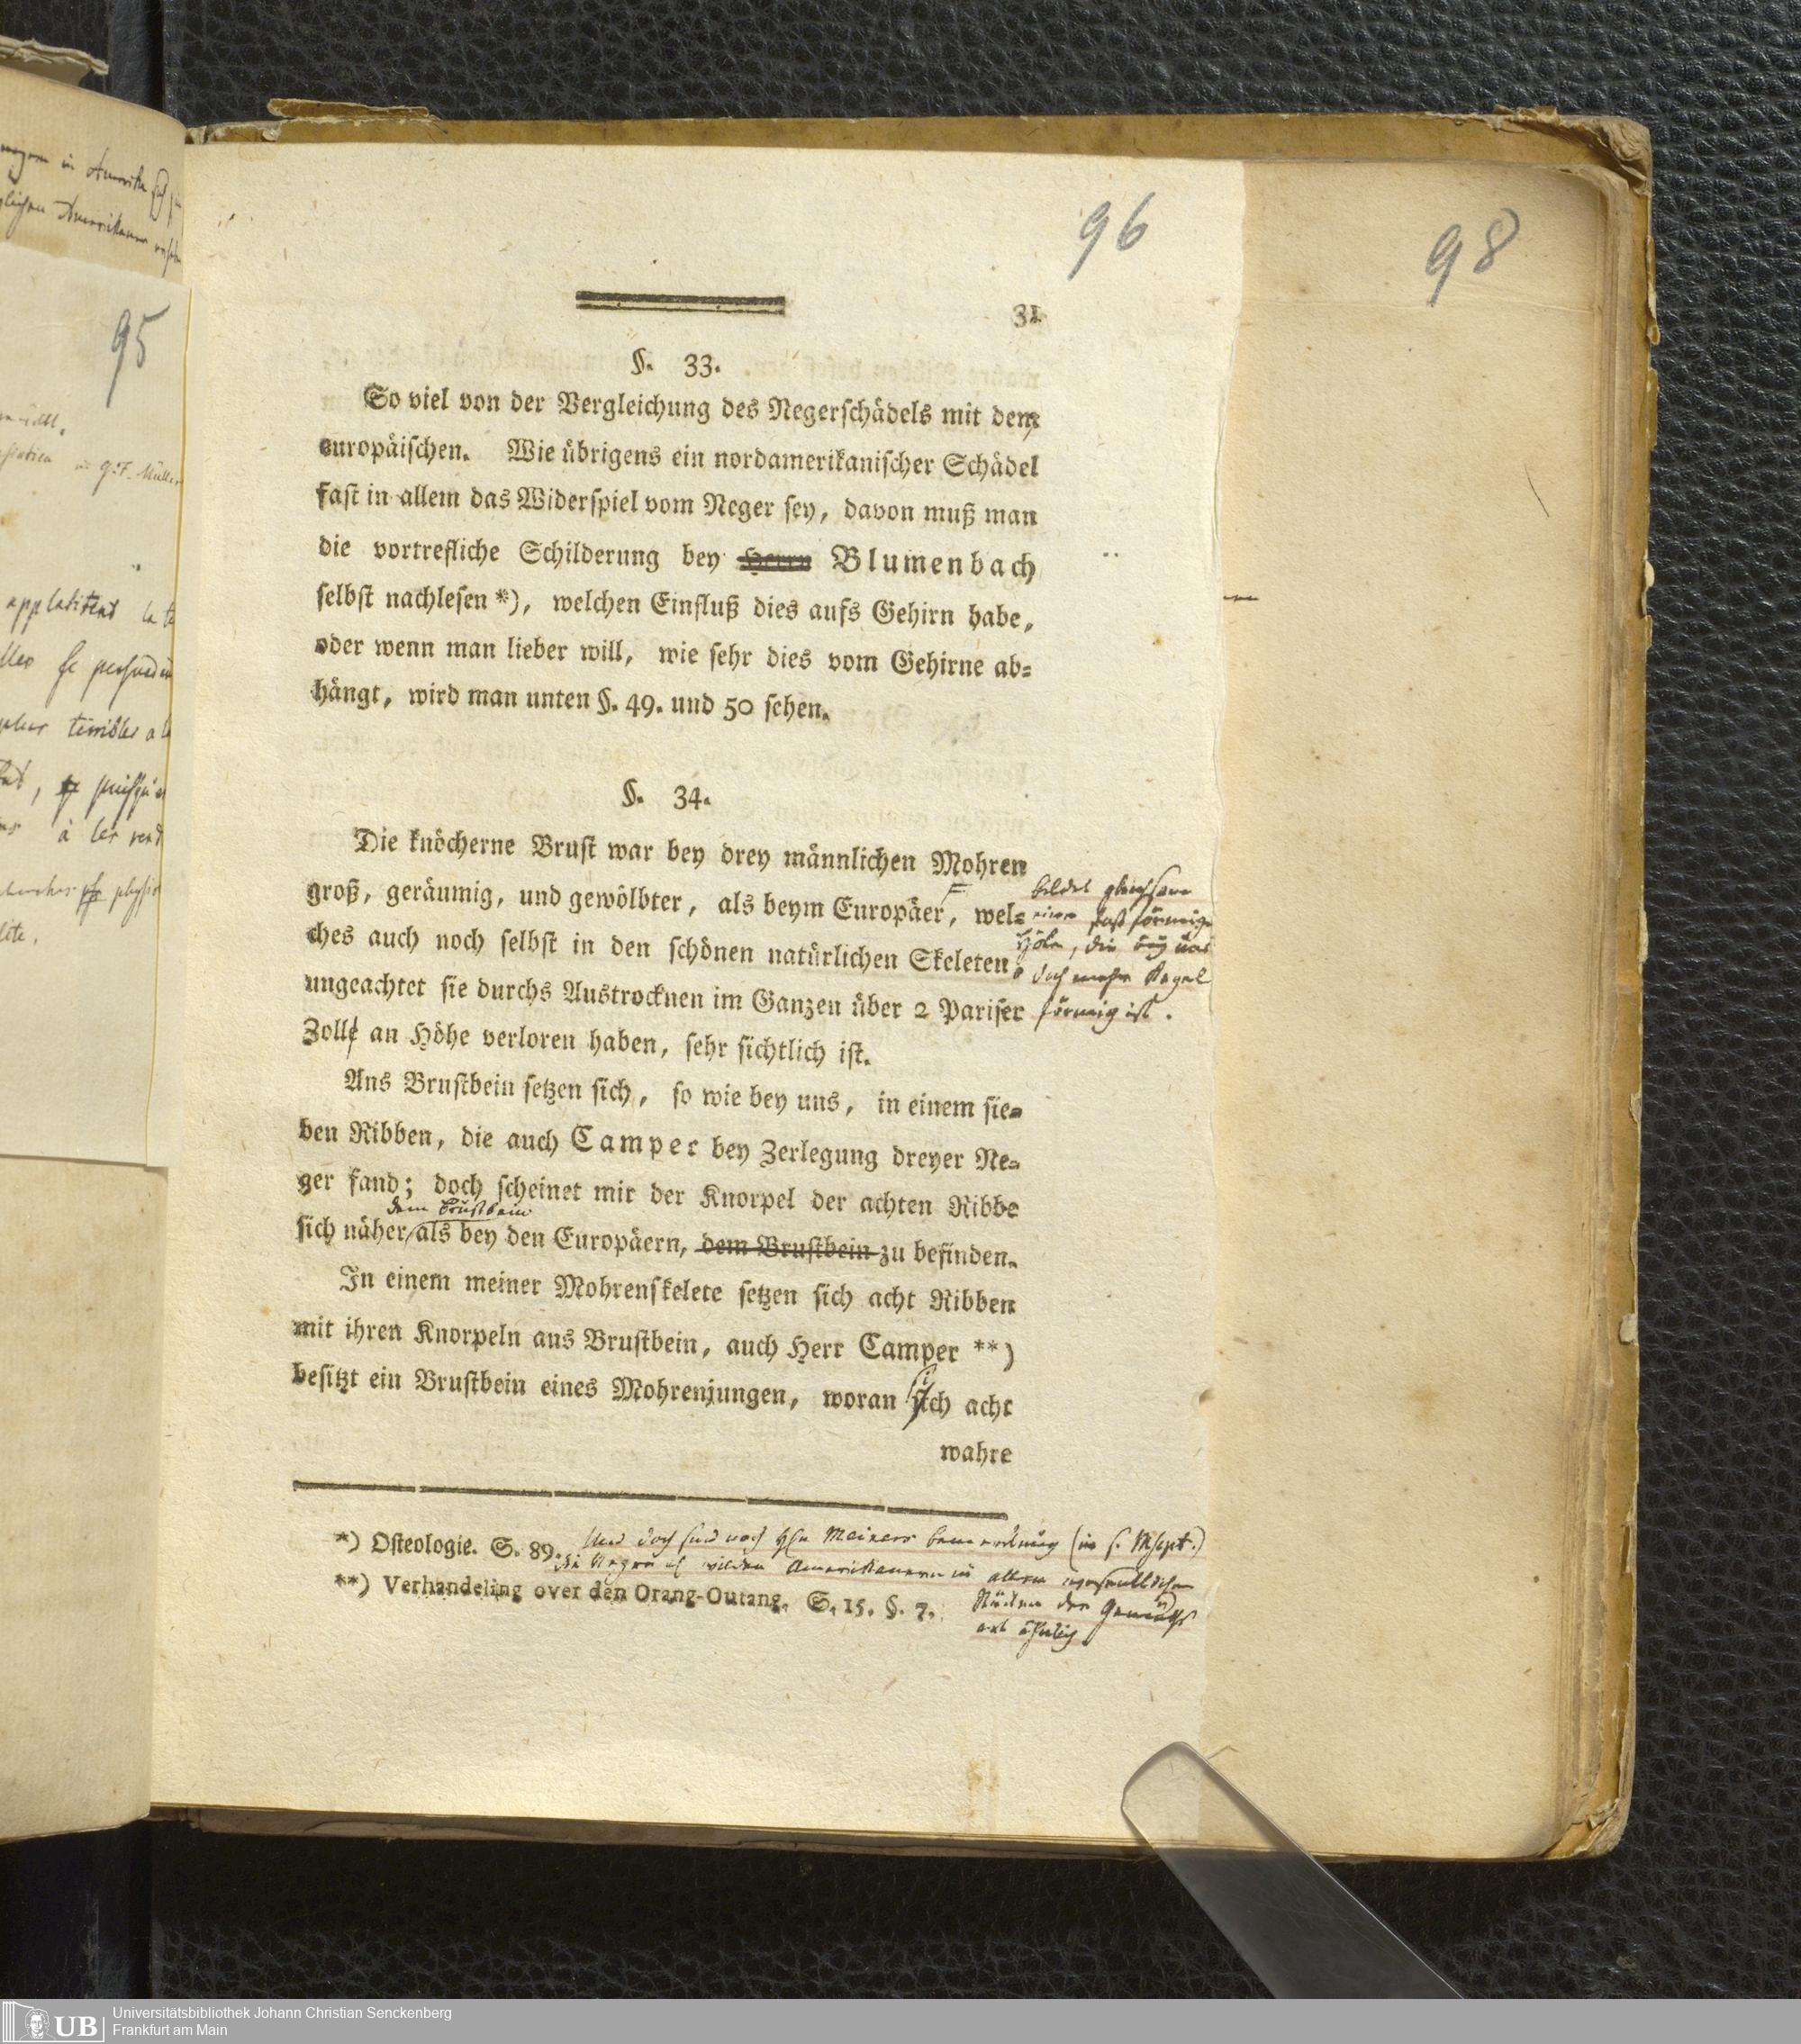 96
98
31
§. 33.
So viel von der Vergleichung des Negerschädels mit dem
europäischen. Wie übrigens ein nordamerikanischer Schädel
fast in allem das Widerspiel vom Neger sey, davon muß man
die vortrefliche Schilderung bey Herrn Blumenbach
selbst nachlesen *), welchen Einfluß dies aufs Gehirn habe,
oder wenn man lieber will, wie sehr dies vom Gehirne ab-
hängt, wird man unten §. 49. und 50 sehen.
§. 34.
Die knöcherne Brust war bey drey männlichen Mohren
groß, geräumig, und gewölbter, als beym Europäer, wel-
ches auch noch selbst in den schönen natürlichen Skeleten,
ungeachtet sie durchs Austrocknen im Ganzen über 2 Pariser
Zolle an Höhe verloren haben, sehr sichtlich ist.
bildet gleichsam
eine faßförmige
Höle, die bey uns
doch mehr Kegel
förmig ist.
Ans Brustbein setzen sich, so wie bey uns, in einem sie-
ben Ribben, die auch Camper bey Zerlegung dreyer Ne-
ger fand; doch scheinet mir der Knorpel der achten Ribbe
dem Brustbein
sich näher als bey den Europäern, dem Brustbein zu befinden.
In einem meiner Mohrenskelete setzen sich acht Ribben
mit ihren Knorpeln ans Brustbein, auch Herr Camper **)
besitzt ein Brustbein eines Mohrenjungen, woran sich acht
wahre
*) Osteologie. S. 89. Und doch sind nach Hrn Meiners bemerkung (in s. Mscpt.)
die Neger wilden Amerikanern in allen wesentlichen
Stücken der Gemüths
art ähnlich
**) Verhandeling over den Orang-Outang. S. 15. §. 7.
95
Universitätsbibliothek Johann Christian Senckenberg
Frankfurt am Main
UB